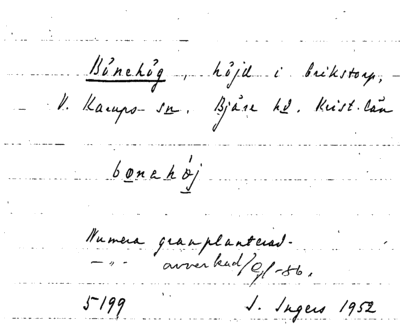 Bönehög, höjd i Erikstorp,
V. Karups sn. Bjäre hd. Krist. län
bønehøj
Numera granplanterad.
–"– avverkad/ -86.
5199 I. Ingers 1952